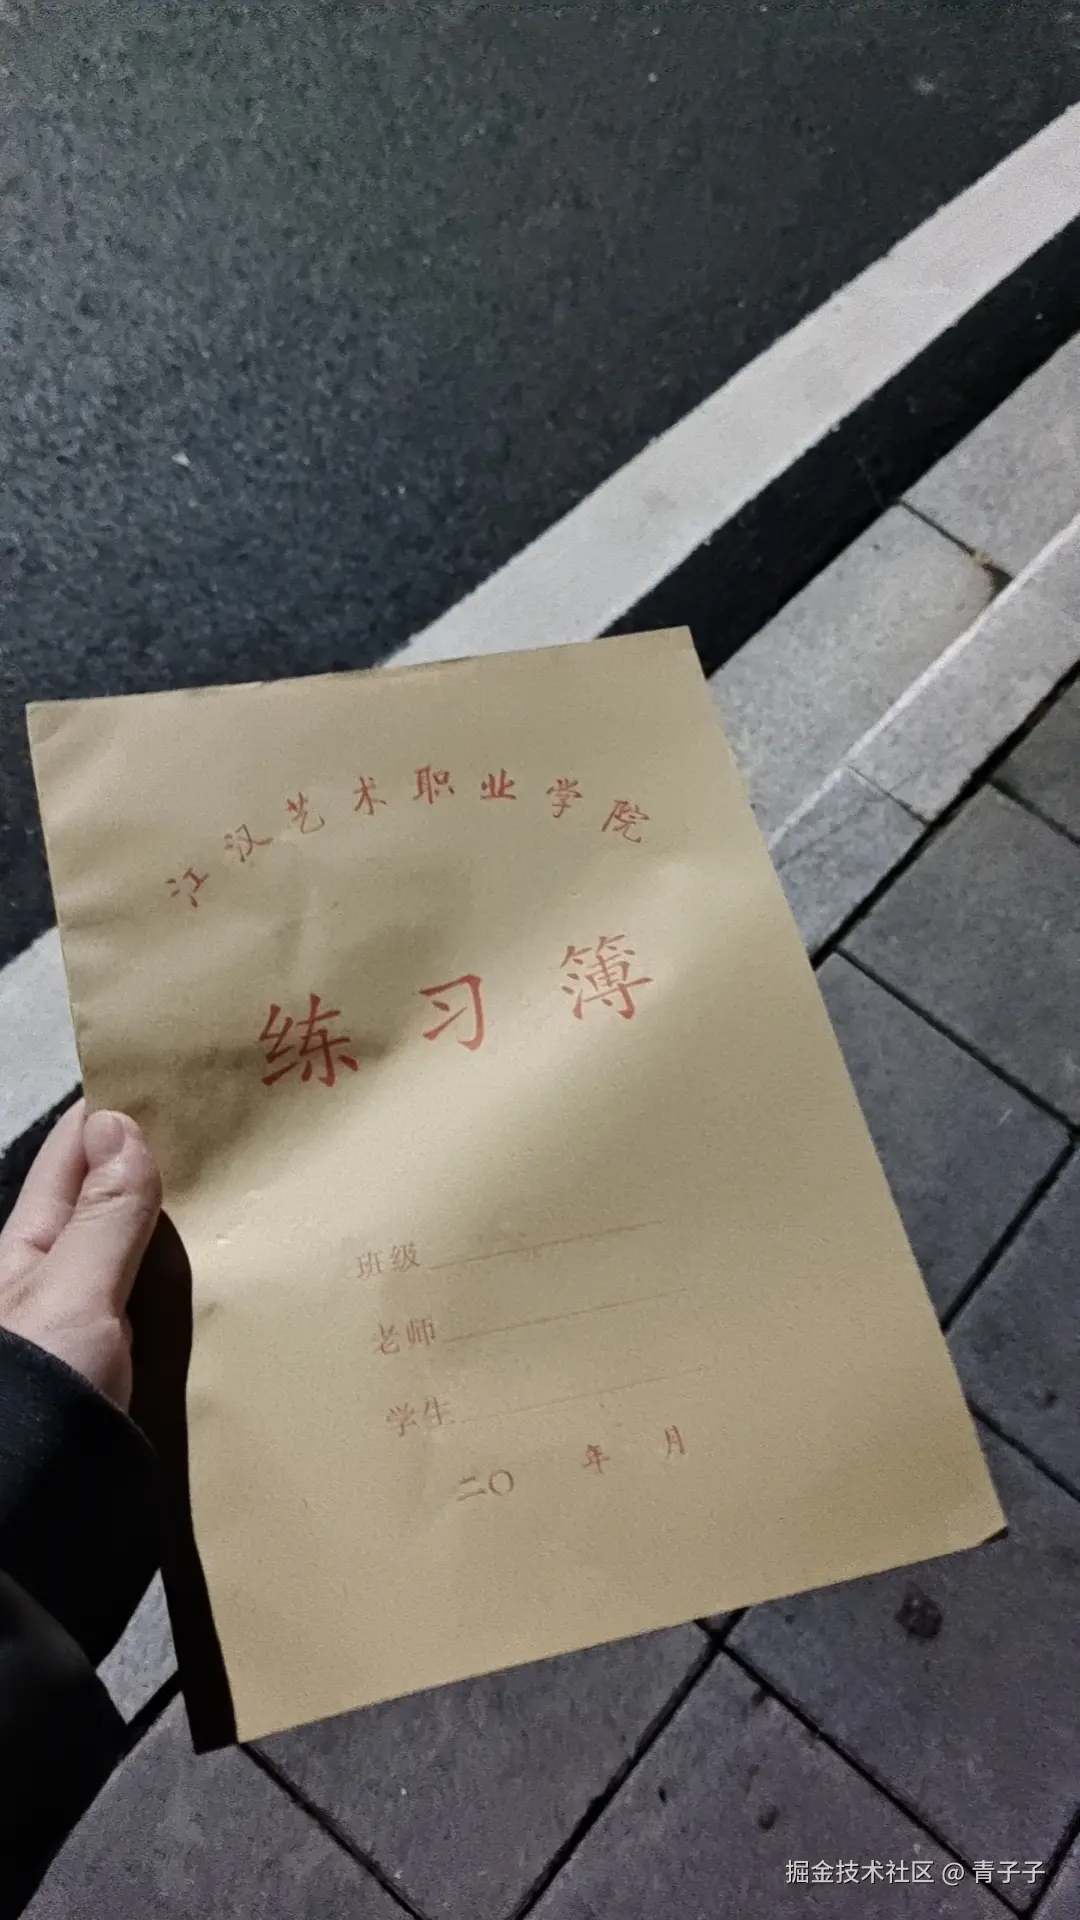 江汉艺术职业学院
练习簿
班级
老师
学生
二〇 年 月
掘金技术社区 @ 青子子